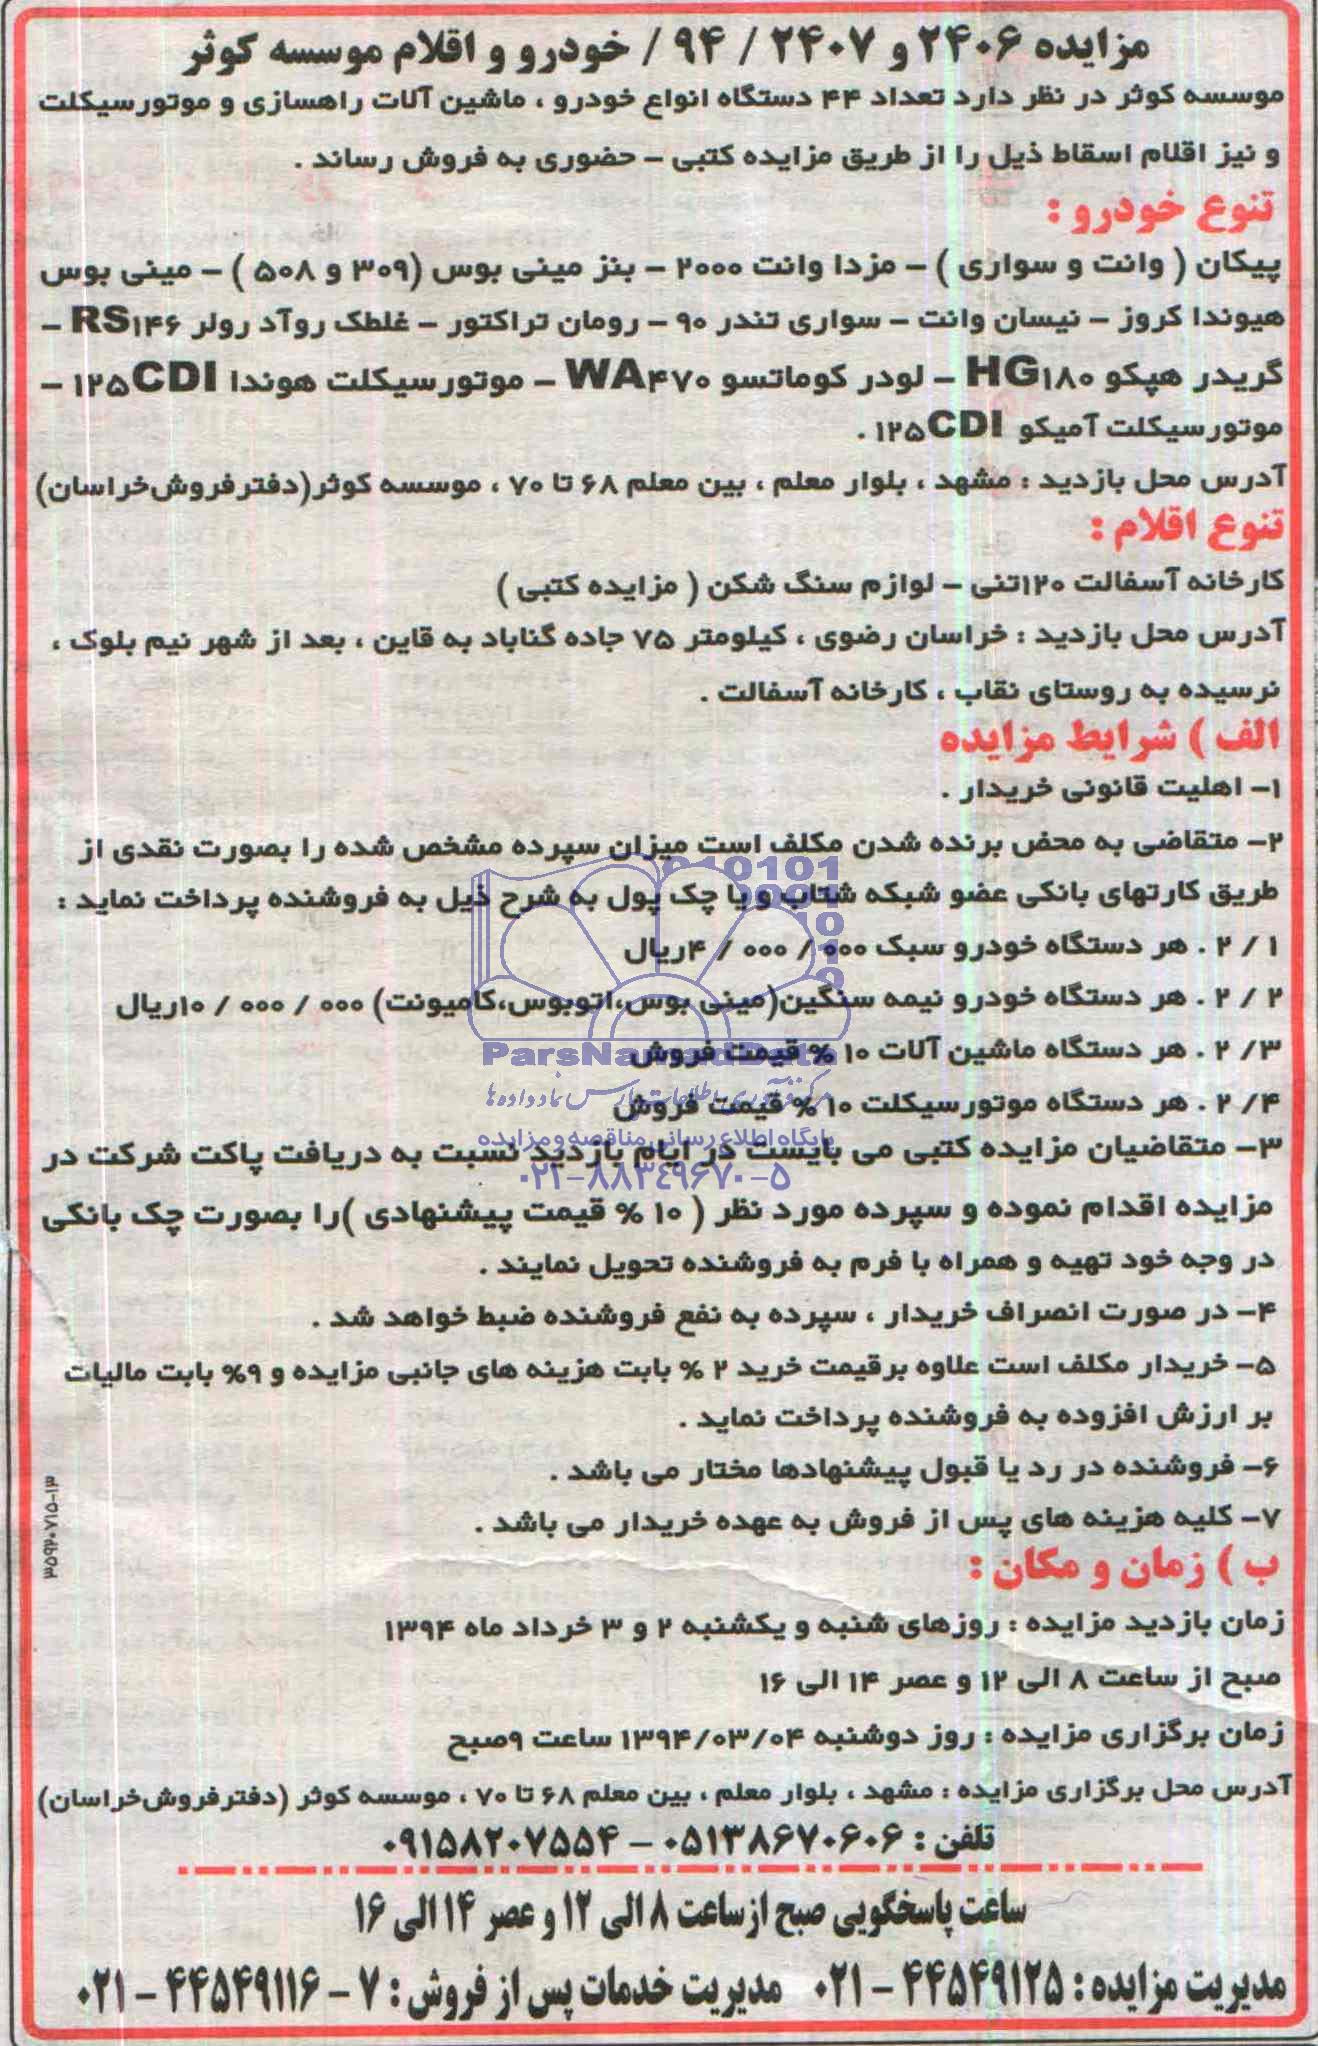 مزایده ۲۴۰۶ و ۲۴۰۷ / ۹۴ / خودرو و اقلام موسسه کوثر
موسسه کوثر در نظر دارد تعداد ۴۴ دستگاه انواع خودرو ، ماشین آلات راهسازی و موتورسیکلت
و نیز اقلام اسقاط ذیل را از طریق مزایده کتبی - حضوری به فروش رساند .
تنوع خودرو :
پیکان ( وانت و سواری ) - مزدا وانت ۲۰۰۰ - بنز مینی بوس (۳۰۹ و ۵۰۸ ) - مینی بوس
هیوندا کروز - نیسان وانت - سواری تندر ۹۰ - رومان تراکتور - غلطک روآد رولر RS۱۴۶ -
گریدر هپکو HG۱۸۰ - لودر کوماتسو WA۴۷۰ - موتورسیکلت هوندا ۱۲۵CDI -
موتورسیکلت آمیکو ۱۲۵CDI .
آدرس محل بازدید : مشهد ، بلوار معلم ، بین معلم ۶۸ تا ۷۰ ، موسسه کوثر(دفترفروش‌خراسان)
تنوع اقلام :
کارخانه آسفالت ۱۲۰تنی - لوازم سنگ شکن ( مزایده کتبی )
آدرس محل بازدید : خراسان رضوی ، کیلومتر ۷۵ جاده گناباد به قاین ، بعد از شهر نیم بلوک ،
نرسیده به روستای نقاب ، کارخانه آسفالت .
الف ) شرایط مزایده
۱- اهلیت قانونی خریدار .
۲- متقاضی به محض برنده شدن مکلف است میزان سپرده مشخص شده را بصورت نقدی از
طریق کارتهای بانکی عضو شبکه شتاب و یا چک پول به شرح ذیل به فروشنده پرداخت نماید :
۲/۱ . هر دستگاه خودرو سبک ۴/۰۰۰/۰۰۰ریال
۲/۲ . هر دستگاه خودرو نیمه سنگین(مینی بوس،اتوبوس،کامیونت) ۱۰/۰۰۰/۰۰۰ریال
۲/۳ . هر دستگاه ماشین آلات ۱۰ % قیمت فروش
۲/۴ . هر دستگاه موتورسیکلت ۱۰ % قیمت فروش
۳- متقاضیان مزایده کتبی می بایست در ایام بازدید نسبت به دریافت پاکت شرکت در
مزایده اقدام نموده و سپرده مورد نظر ( ۱۰ % قیمت پیشنهادی )را بصورت چک بانکی
در وجه خود تهیه و همراه با فرم به فروشنده تحویل نمایند .
۴- در صورت انصراف خریدار ، سپرده به نفع فروشنده ضبط خواهد شد .
۵- خریدار مکلف است علاوه برقیمت خرید ۲ % بابت هزینه های جانبی مزایده و ۹% بابت مالیات
بر ارزش افزوده به فروشنده پرداخت نماید .
۶- فروشنده در رد یا قبول پیشنهادها مختار می باشد .
۷- کلیه هزینه های پس از فروش به عهده خریدار می باشد .
ب ) زمان و مکان :
زمان بازدید مزایده : روزهای شنبه و یکشنبه ۲ و ۳ خرداد ماه ۱۳۹۴
صبح از ساعت ۸ الی ۱۲ و عصر ۱۴ الی ۱۶
زمان برگزاری مزایده : روز دوشنبه ۱۳۹۴/۰۳/۰۴ ساعت ۹صبح
آدرس محل برگزاری مزایده : مشهد ، بلوار معلم ، بین معلم ۶۸ تا ۷۰ ، موسسه کوثر (دفترفروش‌خراسان)
تلفن : ۰۵۱۳۸۶۷۰۶۰۶ - ۰۹۱۵۸۲۰۷۵۵۴
ساعت پاسخگویی صبح ازساعت ۸ الی ۱۲ و عصر ۱۴ الی ۱۶
مدیریت مزایده : ۴۴۵۴۹۱۲۵ - ۰۲۱ مدیریت خدمات پس از فروش : ۷ - ۴۴۵۴۹۱۱۶ - ۰۲۱
پایگاه اطلاع رسانی مناقصه و مزایده
۰۲۱-۸۸۳۴۹۶۷۰-۵